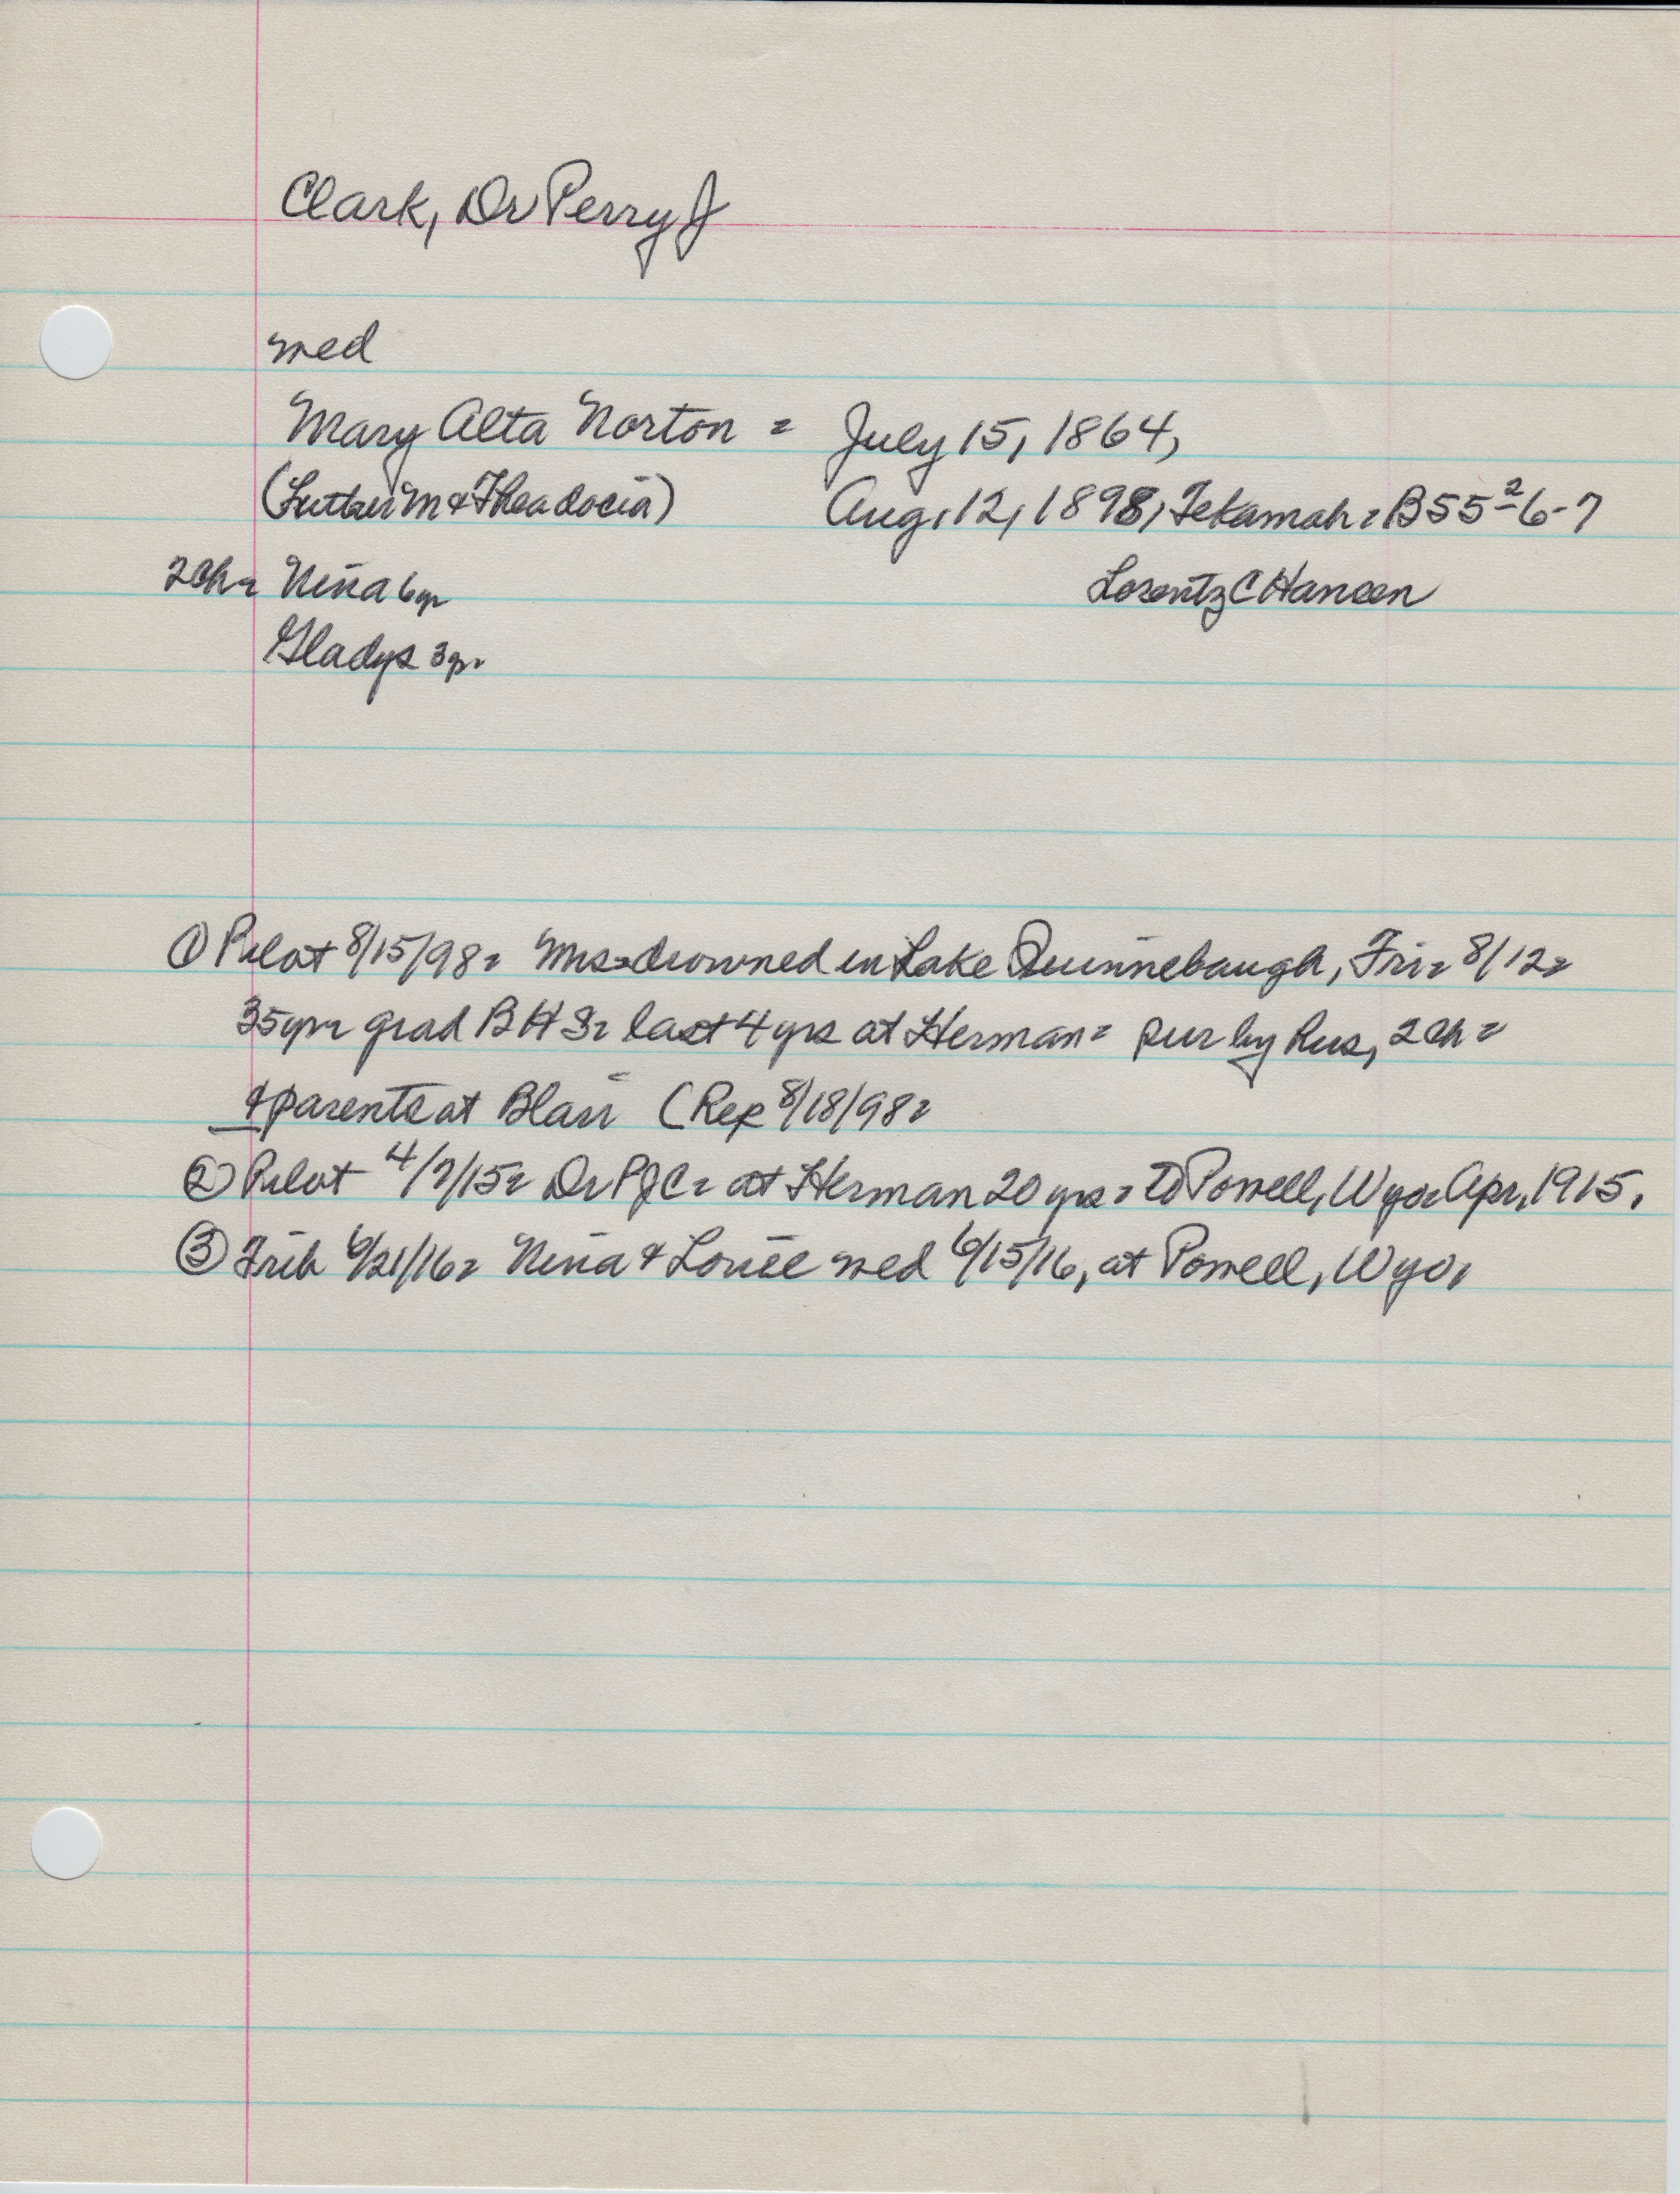 Clark, Dr Perry J
med
Mary Alta Norton = July 15, 1864,
(Luther M & Theadocia) Aug. 12, 1898, Tekamah = B55-2-6-7
2Ch = Nina 6yr Lorentz C Hansen
Gladys 3yr.
① Pilot 8/15/98 = Mrs = drowned in Lake Quinnebaugh, Fri = 8/12 =
35yr = grad BHS = last 4 yrs at Herman = sur by Hus, 2 Ch =
& parents at Blair (Rep 8/18/98 =
② Pilot 4/7/15 = Dr PJC = at Herman 20 yrs = to Powell, Wyo = Apr, 1915.
③ Trib 6/21/16 = Nina & med 6/15/16, at Powell, Wyo,